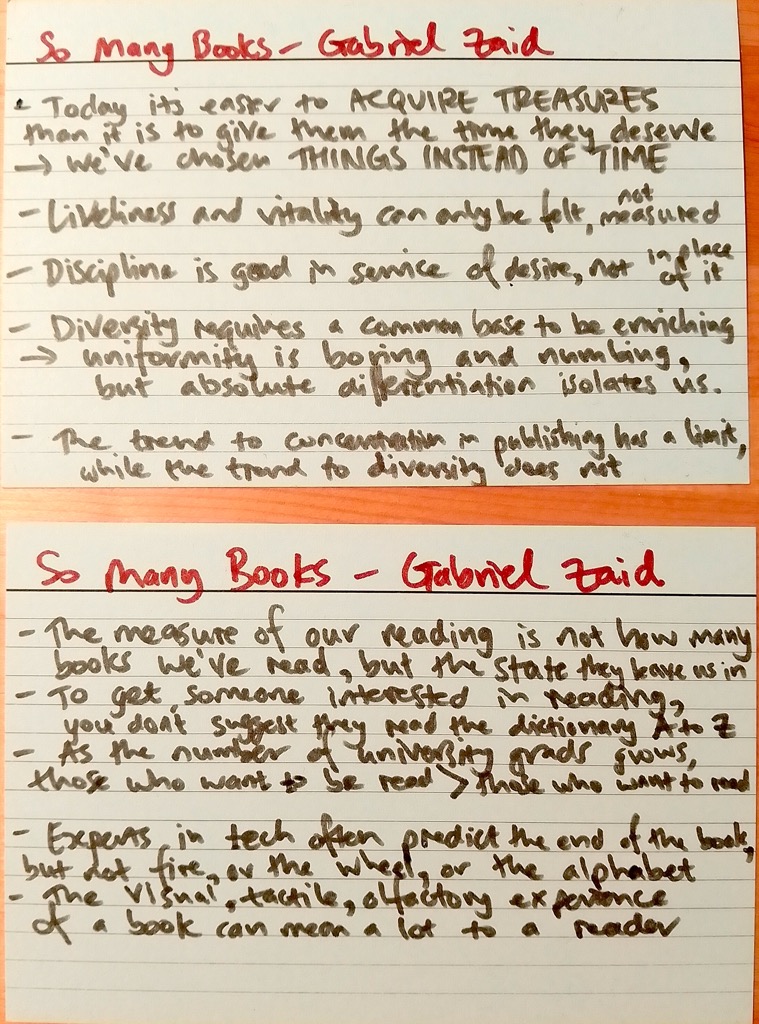 So Many Books - Gabriel Zaid
- Today it's easier to ACQUIRE TREASURES
than it is to give them the time they deserve
→ we've chosen THINGS INSTEAD OF TIME
- Liveliness and vitality can only be felt, not measured
- Discipline is good in service of desire, not in place of it
- Diversity requires a common base to be enriching
→ uniformity is boring and numbing,
but absolute differentiation isolates us.
- The trend to concentration in publishing has a limit,
while the trend to diversity does not
So Many Books - Gabriel Zaid
- The measure of our reading is not how many
books we've read, but the state they leave us in
- To get someone interested in reading,
you don't suggest they read the dictionary A to Z
- As the number of university grads grows,
those who want to be read > those who want to read
- Experts in tech often predict the end of the book,
but not fire, or the wheel, or the alphabet
- The visual, tactile, olfactory experience
of a book can mean a lot to a reader